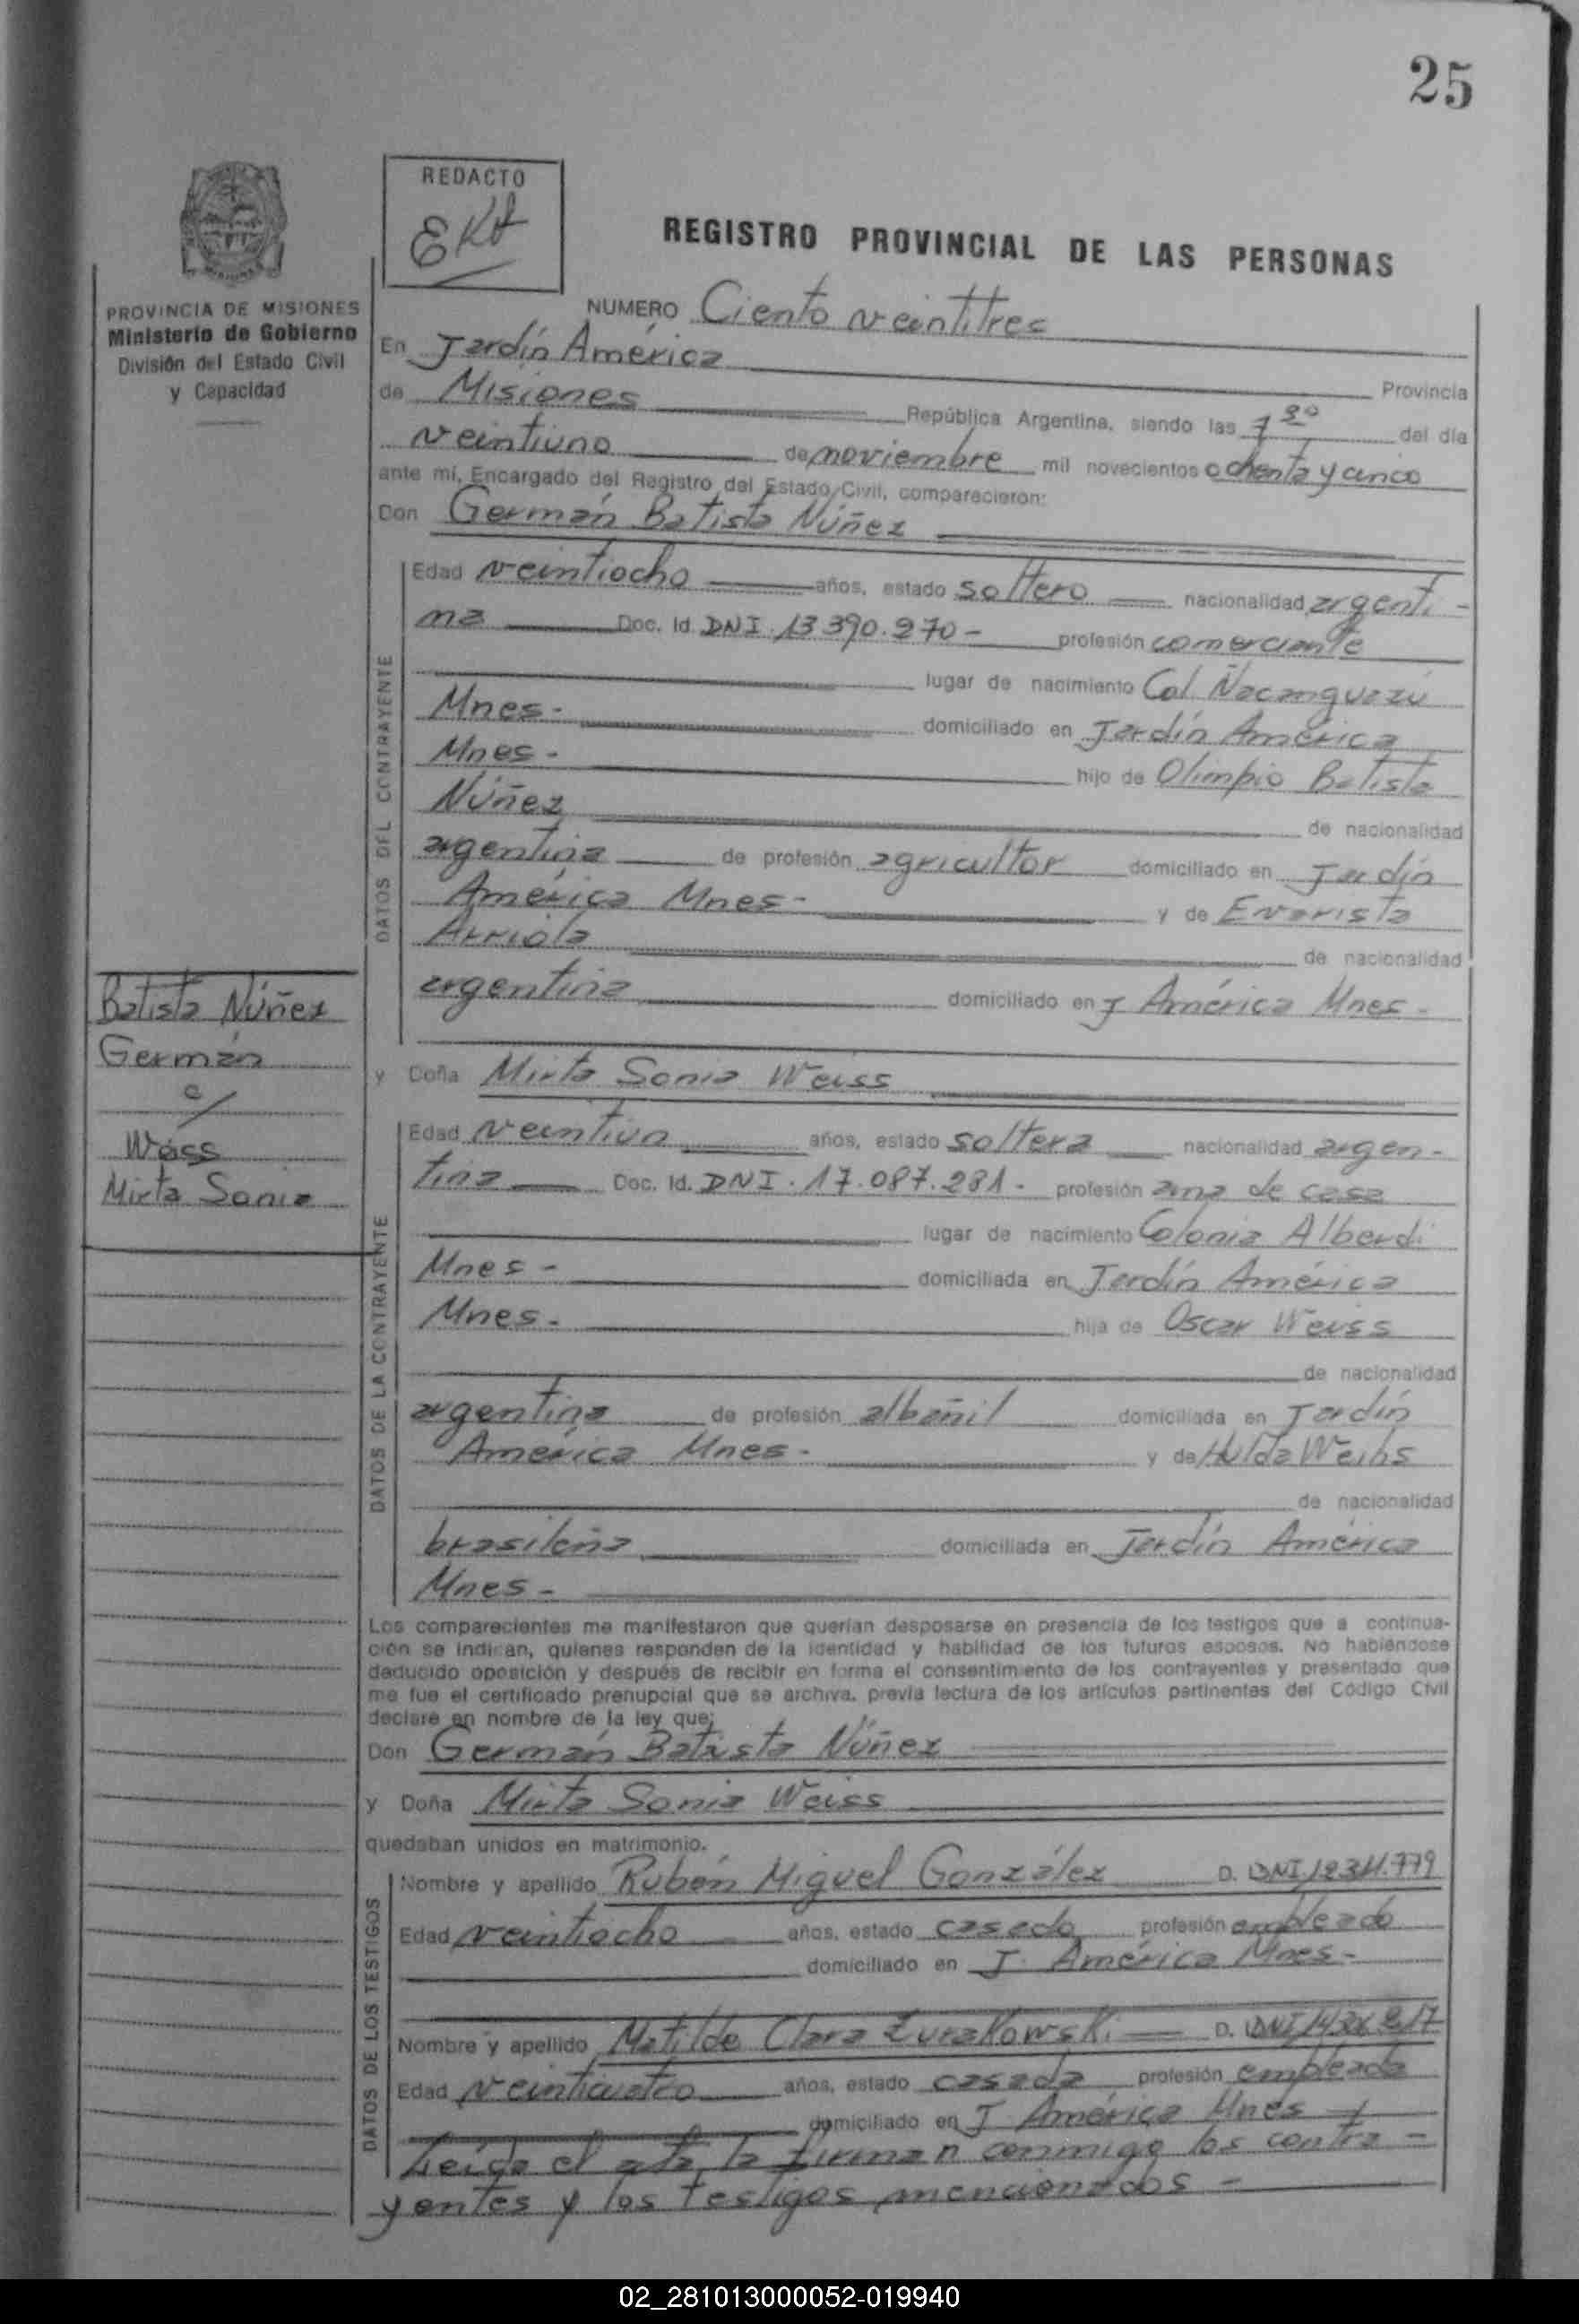 25
REDACTO
REGISTRO PROVINCIAL DE LAS PERSONAS
PROVINCIA DE MISIONES
Ministerio de Gobierno
División del Estado Civil
y Capacidad
NUMERO Ciento veintitres
En Jardín América Provincia
de Misiones República Argentina, siendo las 7 30 del día
veintiuno de noviembre mil novecientos ochenta y cinco
ante mí, Encargado del Registro del Estado Civil, comparecieron:
Don Germán Batista Núñez
DATOS DEL CONTRAYENTE
Edad veintiocho años, estado soltero nacionalidad argenti-
na Doc. Id. DNI. 13 390.270- profesión comerciante
lugar de nacimiento Col. Ñacanguazú
Mnes- domiciliado en Jardín América
Mnes- hijo de Olimpio Batista
Núñez de nacionalidad
argentina de profesión agricultor domiciliado en Jardín
América Mnes- y de Evarista
Arriola de nacionalidad
argentina domiciliado en J América Mnes-
Batista Núñez
Germán
c/
Weiss
Mirta Sonia
y Doña Mirta Sonia Weiss
DATOS DE LA CONTRAYENTE
Edad veintiun años, estado soltera nacionalidad argen-
tina Doc. Id. DNI. 17.087.281- profesión ama de casa
lugar de nacimiento Colonia Alberdi
Mnes- domiciliada en Jardín América
Mnes- hija de Oscar Weiss
de nacionalidad
argentina de profesión albañil domiciliada en Jardín
América Mnes- y de Hulda Weihs
de nacionalidad
brasileña domiciliada en Jardín América
Mnes-
Los comparecientes me manifestaron que querían desposarse en presencia de los testigos que a continua-
ción se indican, quienes responden de la identidad y habilidad de los futuros esposos. No habiéndose
deducido oposición y después de recibir en forma el consentimiento de los contrayentes y presentado que
me fue el certificado prenupcial que se archiva, previa lectura de los artículos pertinentes del Código Civil
declaré en nombre de la ley que;
Don Germán Batista Núñez
y Doña Mirta Sonia Weiss
quedaban unidos en matrimonio.
DATOS DE LOS TESTIGOS
Nombre y apellido Rubén Miguel González D. DNI
Edad veintiocho años, estado casado profesión empleado
domiciliado en J. América Mnes-
Nombre y apellido Matilde Clara Zurakowski D. DNI
Edad veinticuatro años, estado casada profesión empleada
domiciliado en J América Mnes
Leída el acta la firman conmigo los contra-
yentes y los testigos mencionados-
02_281013000052-019940